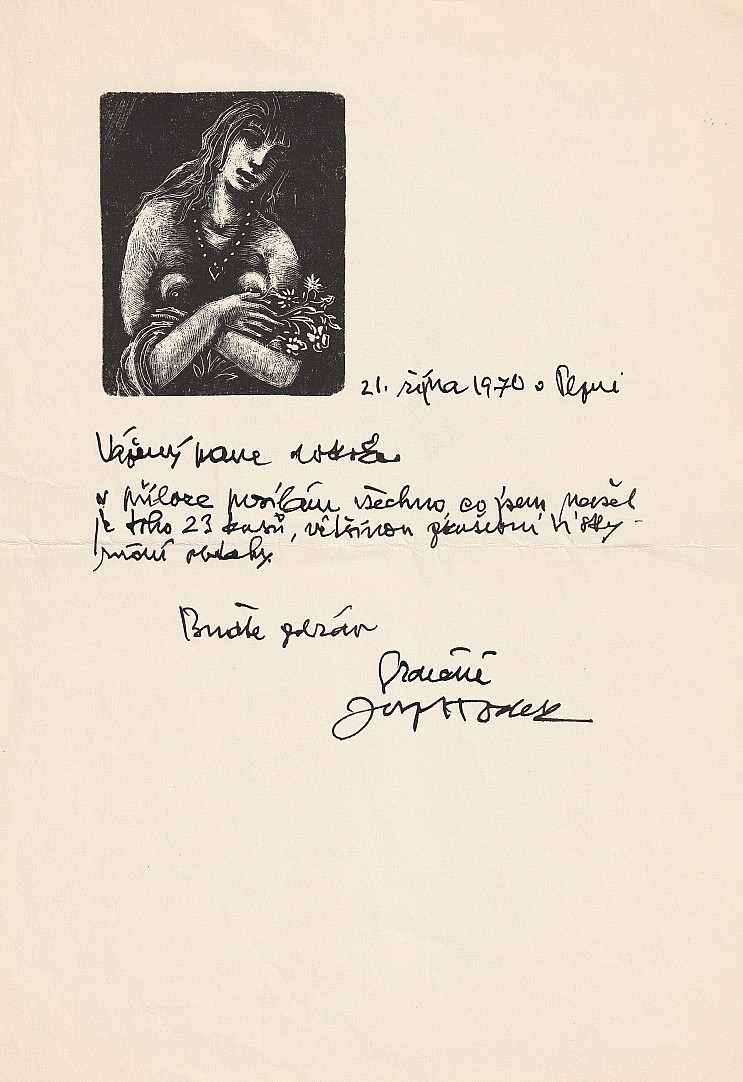 21. října 1970 v Plzni
Vážený pane doktore
v příloze posílám všechno, co jsem našel
je toho 23 kusů, většinou zkušební tisky
Buďte zdráv
Srdečně
Josef Hodek